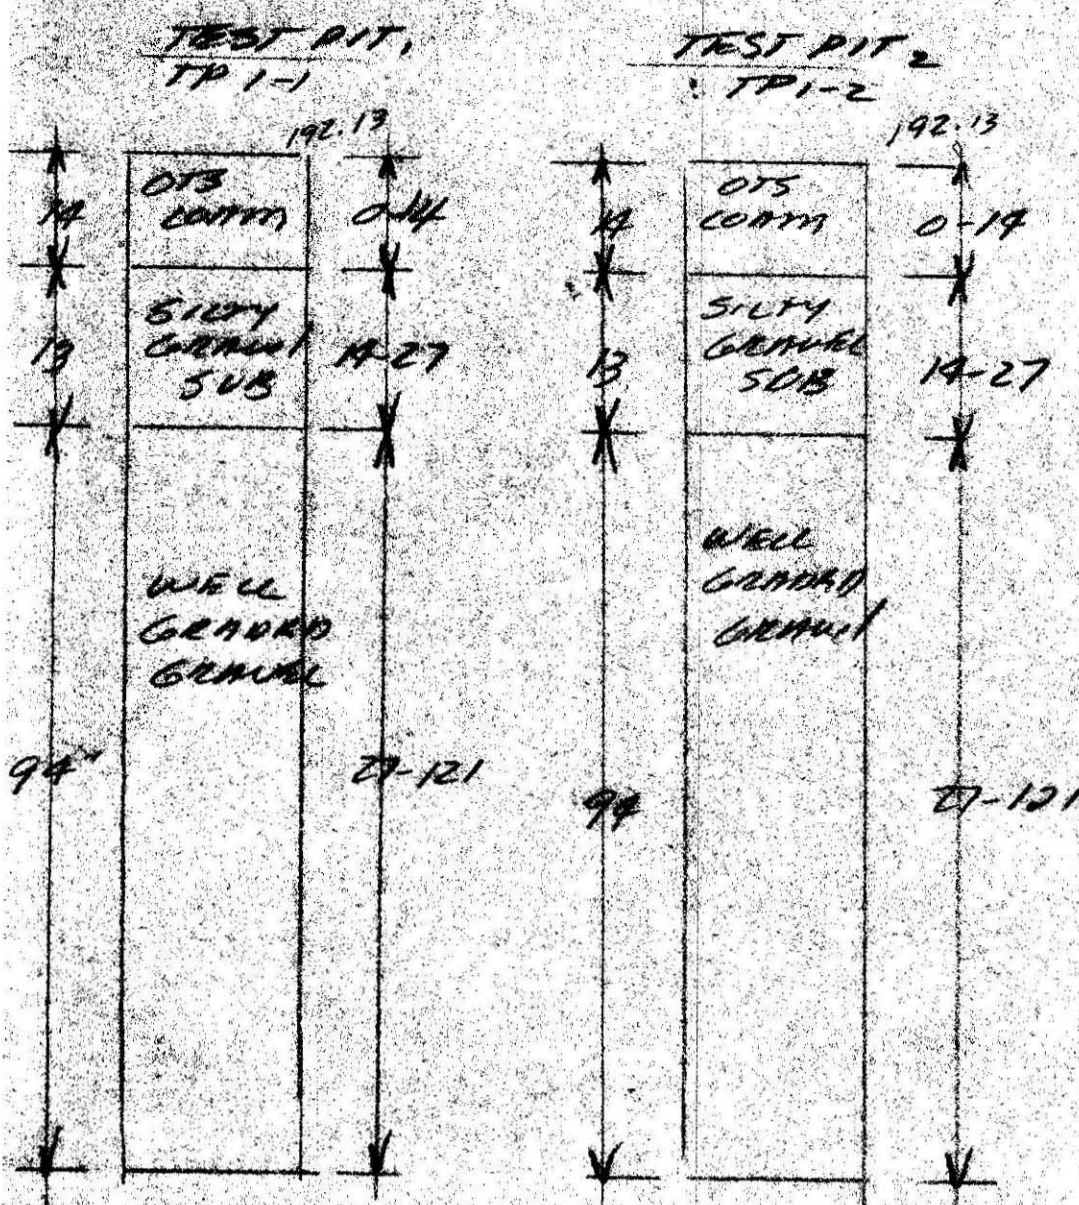 TEST PIT 1
TP 1-1
192.13
14
OTS
LOAM
0-14
13
SILTY
GRAVEL
SUB
14-27
WELL
GRADED
GRAVEL
94"
27-121
TEST PIT 2
TP 1-2
192.13
14
OTS
LOAM
0-14
13
SILTY
GRAVEL
SUB
14-27
WELL
GRADED
GRAVEL
94
27-121